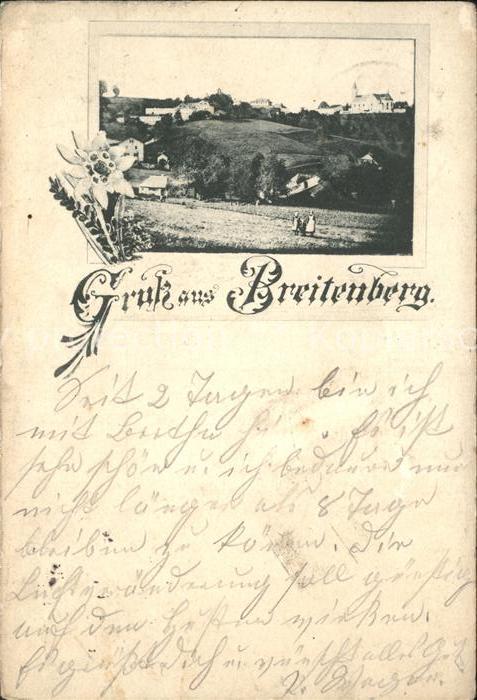 Gruß aus Breitenberg.
Seit 2 Tagen bin ich
mit Bertha hier. Es ist
sehr schön u. ich bedaure nur
nicht länger als 8 Tage
bleiben zu können. Die
Luftveränderung soll günstig
auf den Husten wirken.
Es grüßt dich u. wünscht alles Gute